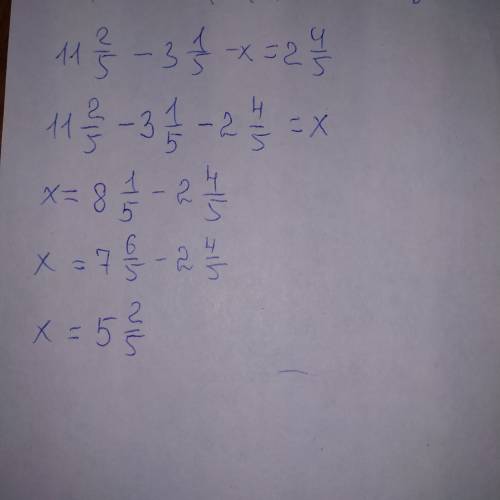 11 2/5 - 3 1/5 - x = 2 4/5
11 2/5 - 3 1/5 - 2 4/5 = x
x = 8 1/5 - 2 4/5
x = 7 6/5 - 2 4/5
x = 5 2/5